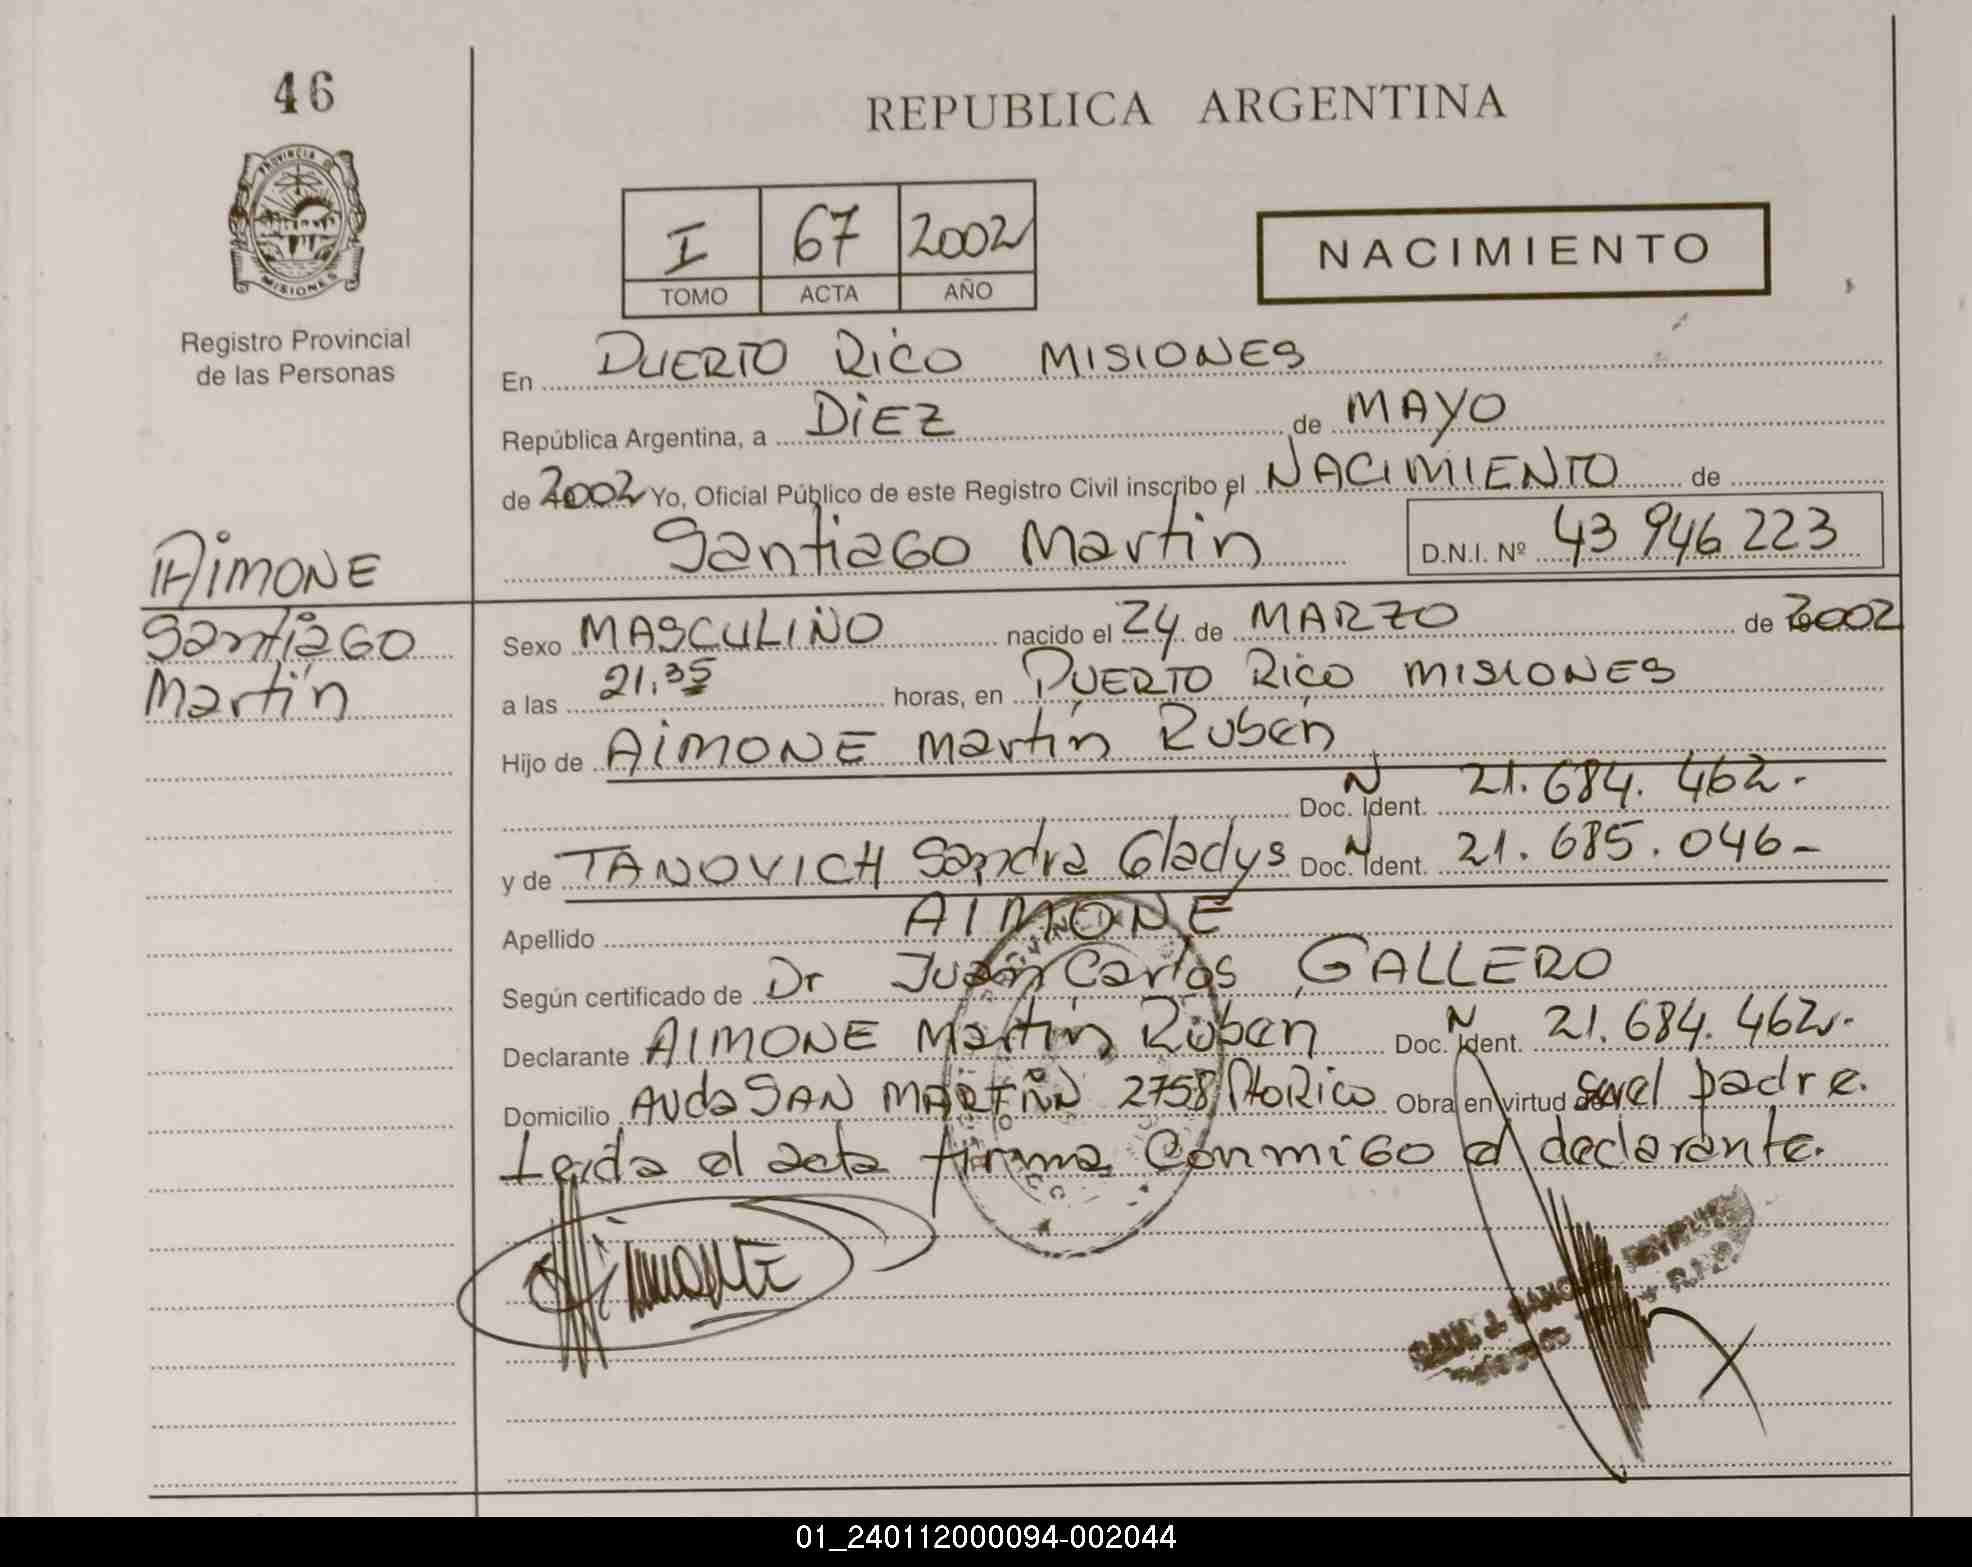 46
REPUBLICA ARGENTINA
PROVINCIA DE
MISIONES
I 67 2002
TOMO ACTA AÑO
NACIMIENTO
Registro Provincial
de las Personas
En PUERTO RICO MISIONES
República Argentina, a DIEZ de MAYO
de 2002 Yo, Oficial Público de este Registro Civil inscribo el NACIMIENTO de
Santiago Martin D.N.I. Nº 43 946 223
AIMONE
Santiago
Martin
Sexo MASCULINO nacido el 24 de MARZO de 2002
a las 21,35 horas, en PUERTO RICO MISIONES
Hijo de AIMONE Martín Rubén
Doc. Ident. N 21.684.462.-
y de TANOVICH Sandra Gladys Doc. Ident. N 21.685.046-
Apellido AIMONE
Según certificado de Dr Juan Carlos GALLERO
Declarante AIMONE Martín Ruben Doc. Ident. N 21.684.462.-
Domicilio AVda SAN MARTIN 2758 Pto Rico Obra en virtud de ser el padre.
Leida el acta firma conmigo el declarante.
Aimone
01_240112000094-002044